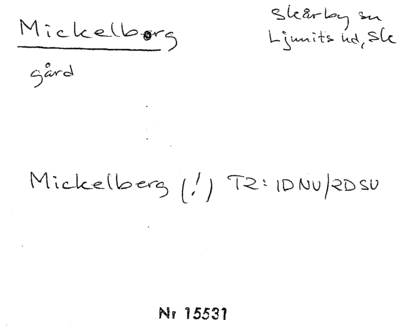 Mickelborg
Skårby sn
Ljunits hd, Sk
gård
Mickelberg (!) T2: 1DNV/2DSV
Nr 15531